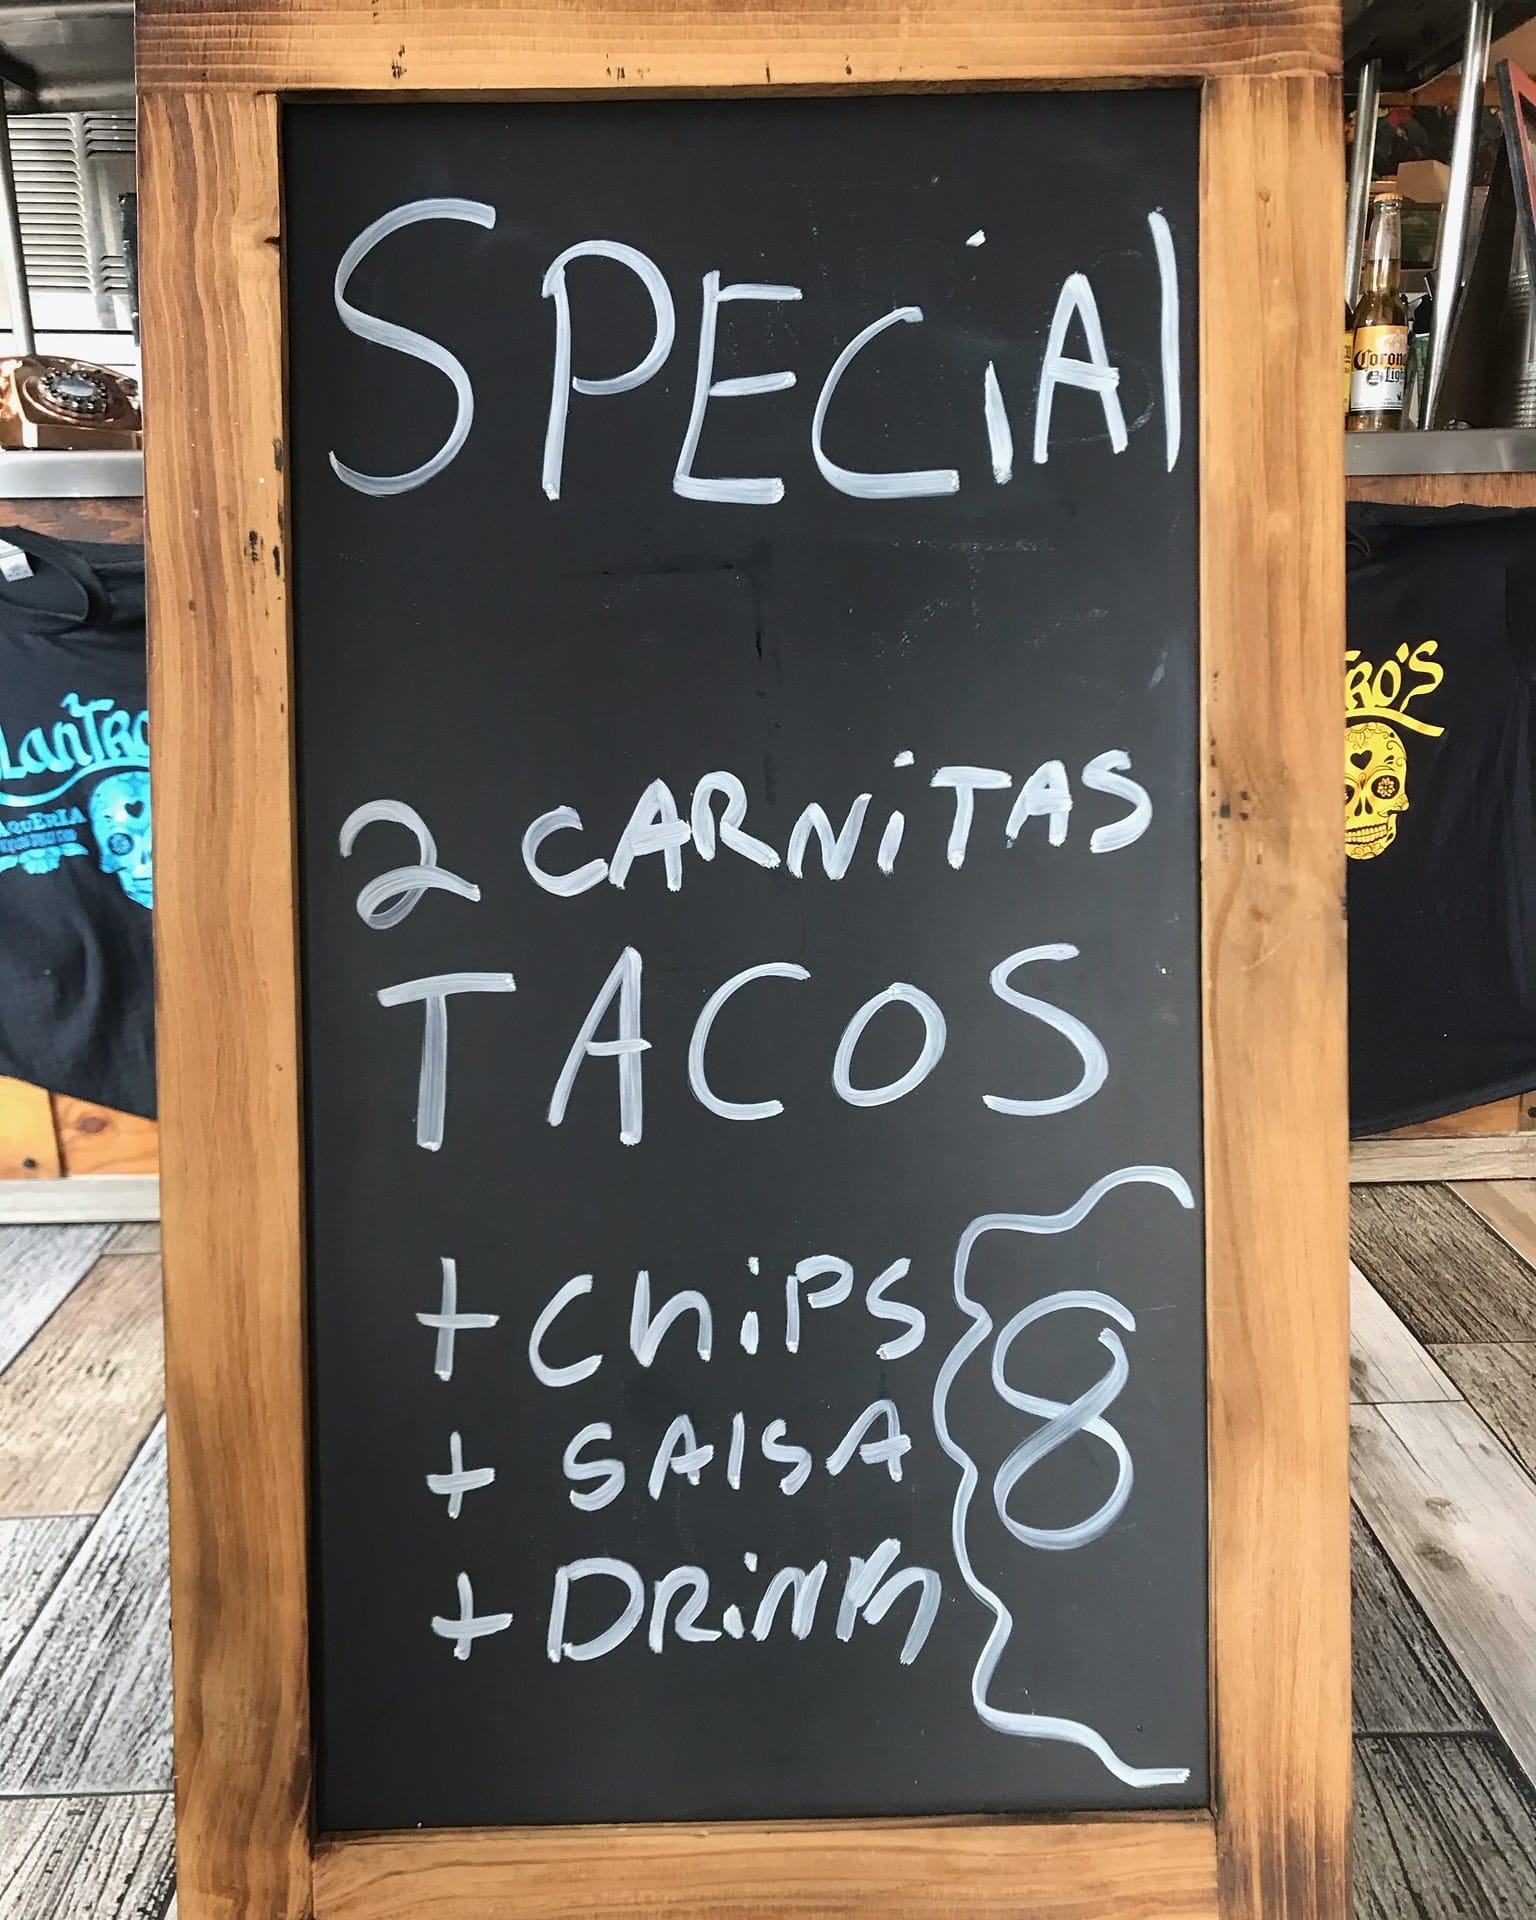 SPECiAl
2 CARNiTAS
TACOS
+ ChiPS
+ SAlSA
+ DRiNK
8
LanTRO
AQUERIA
TRO'S
Corona
Light